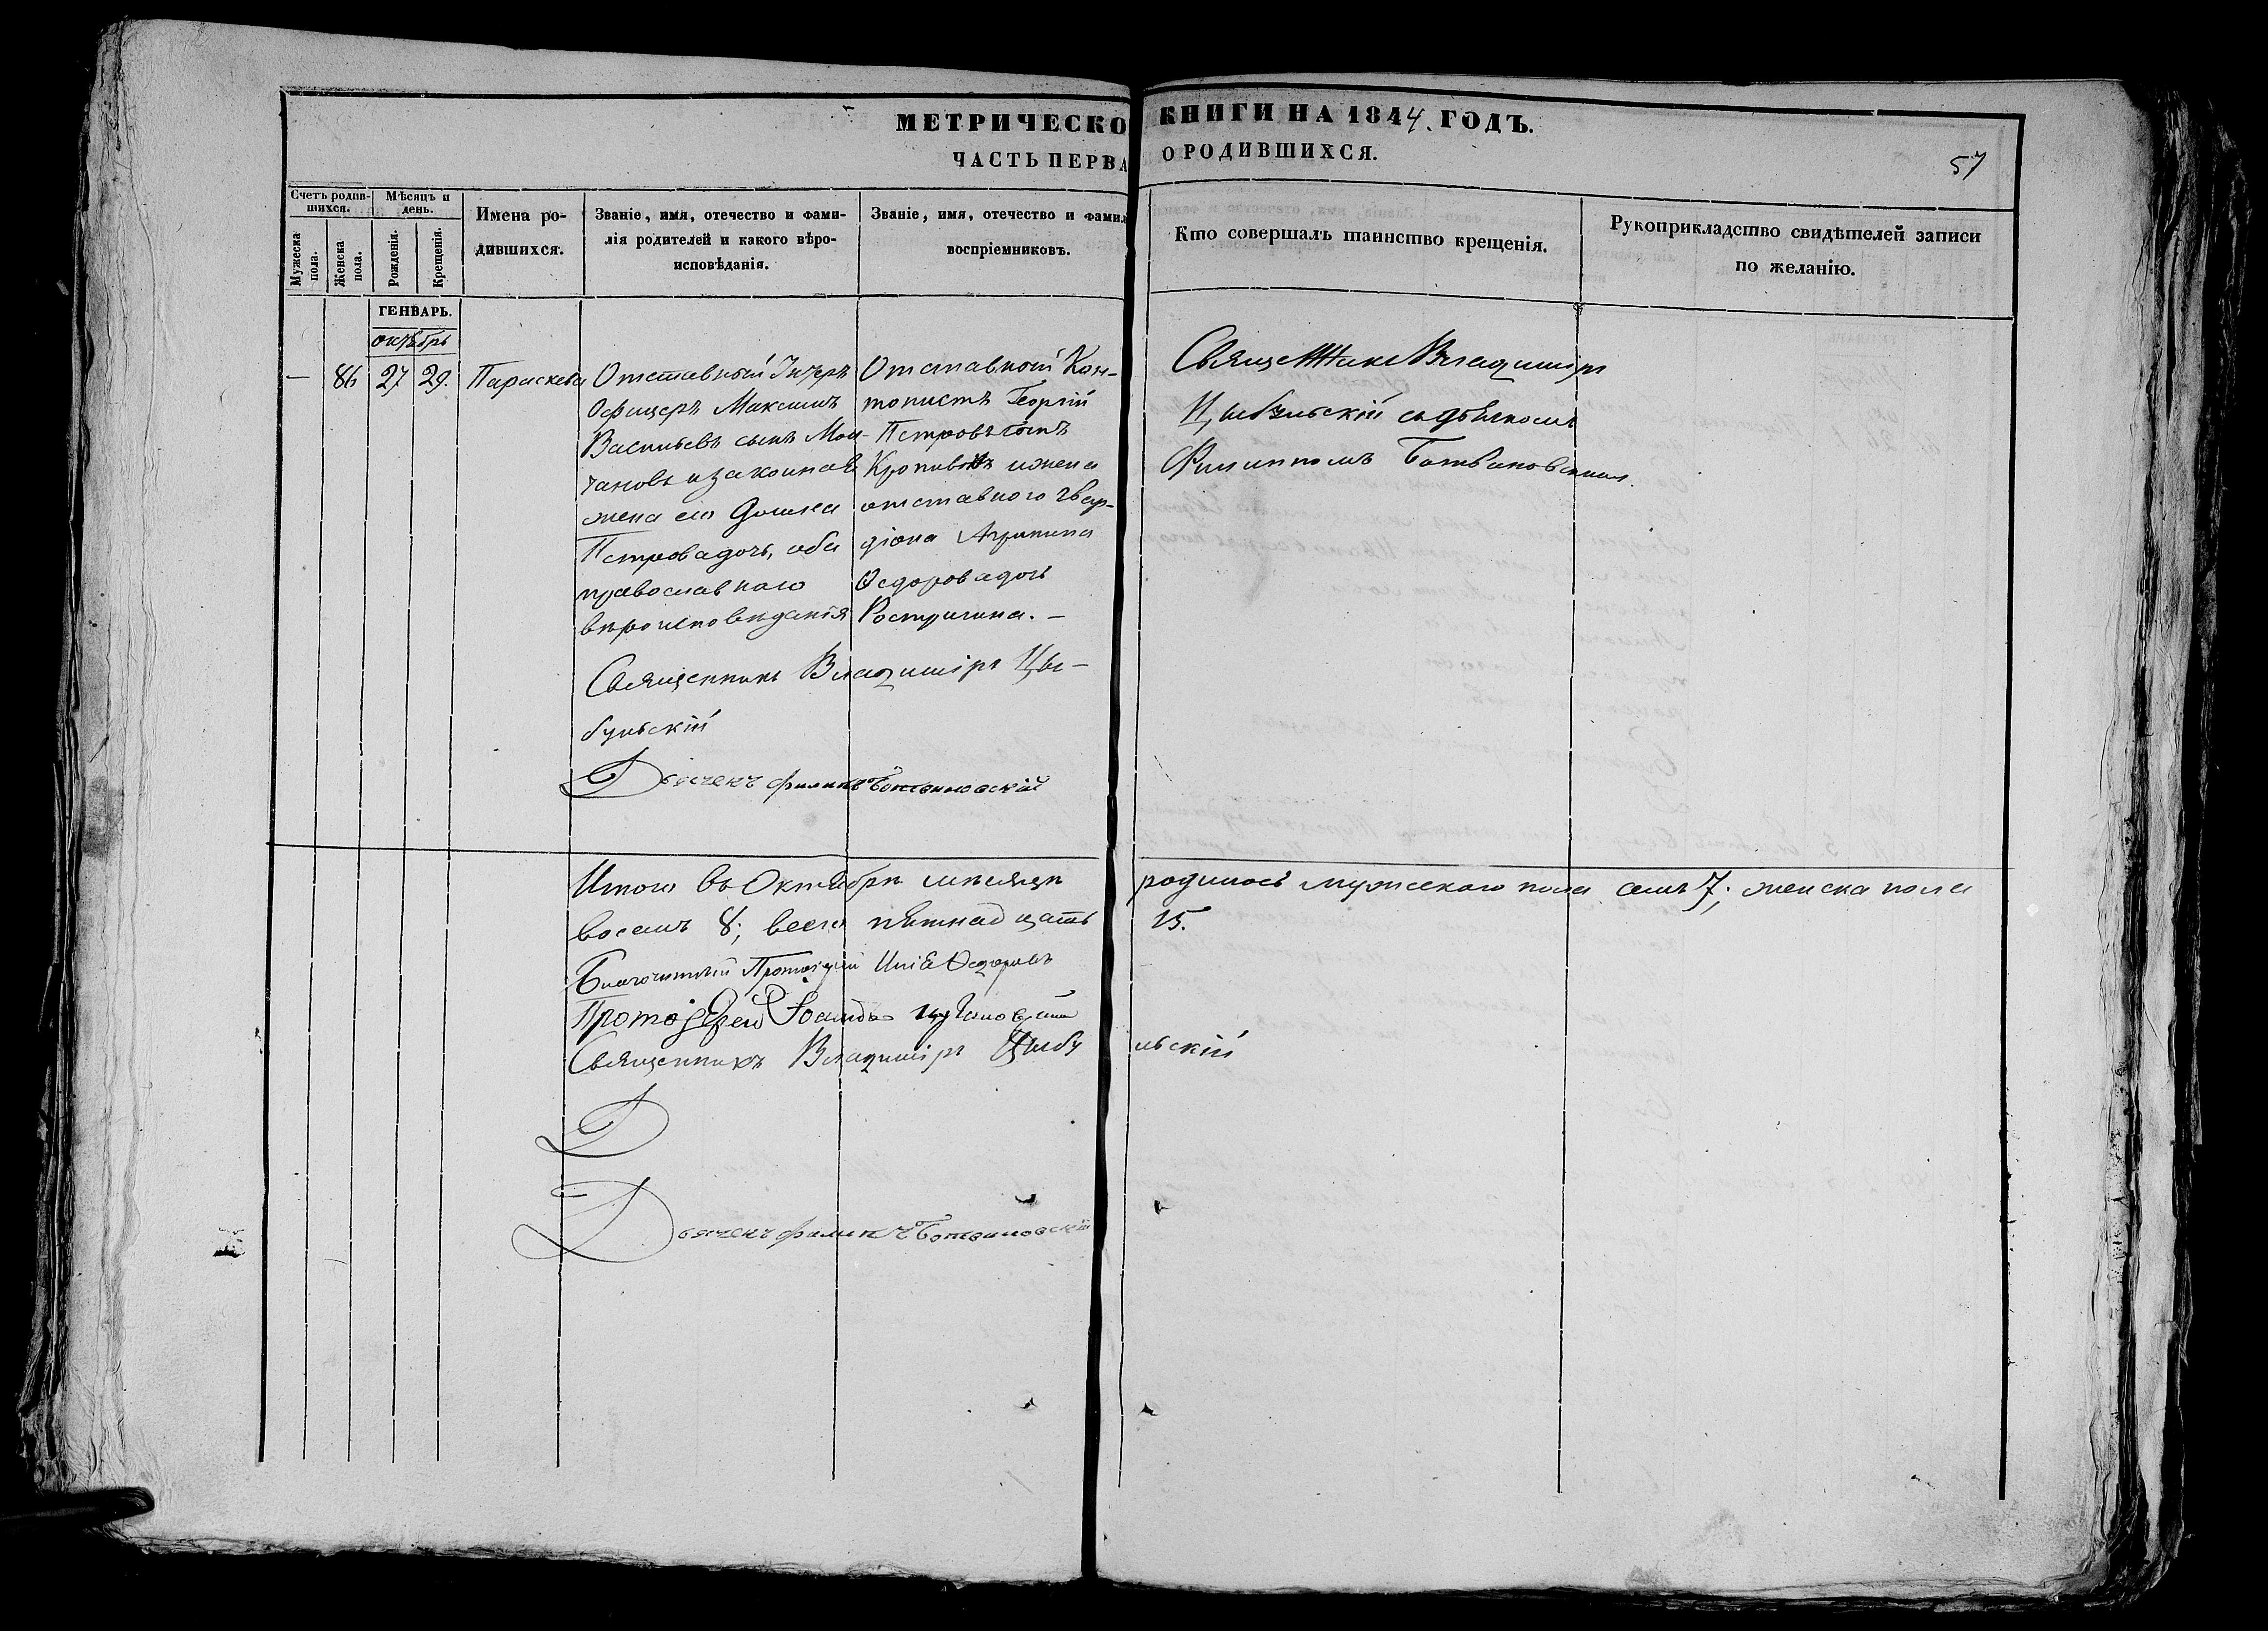 МЕТРИЧЕСКО КНИГИ НА 1844. ГОДЪ.
ЧАСТЬ ПЕРВА О РОДИВШИХСЯ.
57
Счетъ родив-
шихся.
Мужеска
пола.
Женска
пола.
Мѣсяцъ и
день.
Рожденія.
Крещенія.
Имена ро-
дившихся.
Званіе, имя, отечество и фами-
лія родителей и какого вѣро-
исповѣданія.
Званіе, имя, отечество и фамил
воспріемниковъ.
Кто совершалъ таинство крещенія.
Рукоприкладство свидѣтелей записи
по желанію.
ГЕНВАРЬ.
октябрь
— 86 27 29. Параскева
Отставный Унтеръ
Офицеръ Максимъ
Васильевъ сынъ Мол-
чановъ и законная
жена его Домна
Петрова дочь, оба
православнаго
вѣроисповѣданія
Отставной Кан-
тонистъ Георгій
Петровъ сынъ
и жена
отставного гвар-
діона Агрипина
Ѳедорова дочь
Священникъ Владиміръ
Цыбульскій съ дьячкомъ
Филиппомъ Ботвиновскимъ.
Священникъ Владиміръ Цы-
бульскій
Дьячекъ Филипъ Ботвиновскій
Итого въ Октябрѣ мѣсяцѣ родилось мужескаго пола семь 7; женска пола
восемь 8; всего пятнадцать 15.
Благочинный Протоіерей Илія Ѳедоровъ
Протоіерей Іоаннъ
Священникъ Владиміръ Цыбульскій
Д
Дьячекъ Филипъ Ботвиновскій